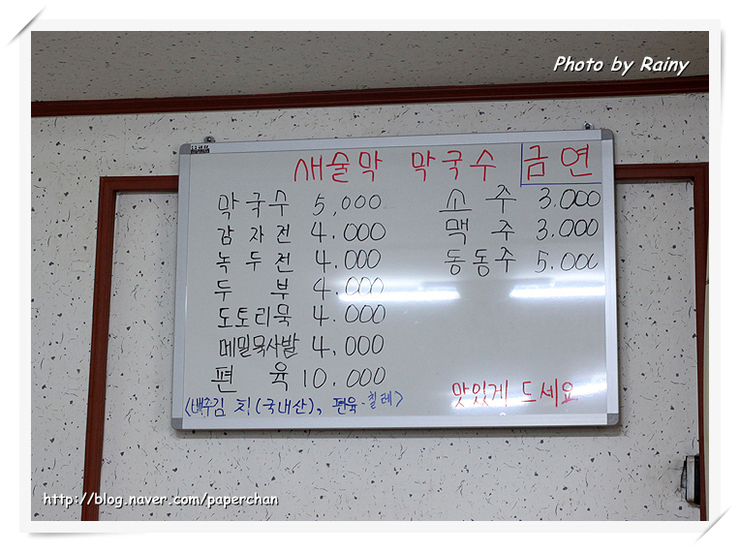 Photo by Rainy
새술막 막국수 금연
막국수 5,000
감자전 4.000
녹두전 4.000
두부 4.000
도토리묵 4.000
메밀묵사발 4.000
편육 10.000
<배추김치(국내산), 편육-칠레>
소주 3.000
맥주 3.000
동동주 5.000
맛있게 드세요
http://blog.naver.com/paperchan